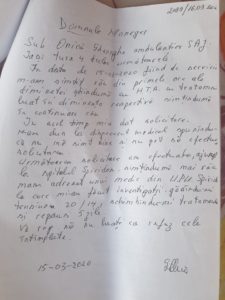 2099/16.03.2020
Domnule Manager
Sub Onica Gheorghe ambulanțier SAJ
Iași Tura 4 următoarele.
In data de 15-03-2020 fiind de serviciu
m-am simțit rău din primele ore ale
dimineții ghindu H.T.A. cu tratament
luat în dimineața respectivă simțindumă
În continuare rău
In acel timp mia dat solicitare.
Mam dus la dispecerul medical spunîndui
că nu mă simt bine și nu pot să efectuez
solicitarea.
Următoarea solicitare am efectuato, ajung
la spitalul Spiridon, simțindumă mai rău
mam adresat unui medic din U.P.U. Spiridon
la care miau făcut investigații găsindumi
tensiunea 20/14, schimbîndumi tratamentul
și repaus 5 zile.
Vă rog să nu luați ca refuz cele
întîmplate.
15-03-2020